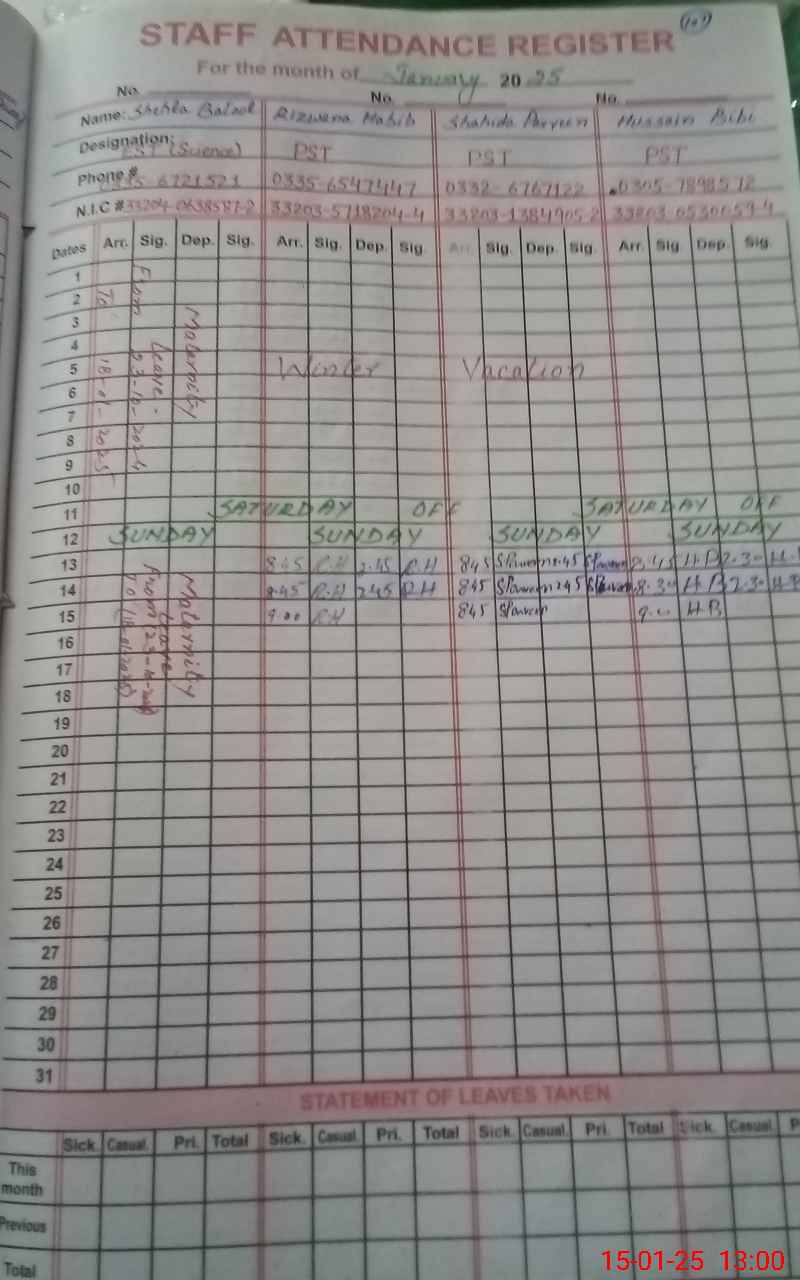 STAFF ATTENDANCE REGISTER
For the month of January 2025
No. No. No.
Name: Shehla Batool Rizwana Habib Shahida Parveen Hussain Bibi
Designation: (Science) PST PST PST
Phone # 6721521 0335-6547447 0332-6767122 0305-7898572
N.I.C # 33204-0638587-2 33203-5718204-4 33203-1384905-2 33203 0530059-4
Dates Arr. Sig. Dep. Sig. Arr. Sig. Dep. Sig. Arr. Sig. Dep. Sig. Arr. Sig. Dep. Sig.
1
2
3
4
5 Winter Vacation
6
7
8
9
10
Maternity
Leave.
From 23-10-2024
To 18-01-2025
11 SATURDAY OFF SATURDAY OFF
12 SUNDAY SUNDAY SUNDAY SUNDAY
13 8.45 R.H 2.45 R.H 845 SParveen 2.45 SParveen 8.45 H.B 2.30 H.B
14 8.45 R.H 2.45 R.H 845 SParveen 245 SParveen 8.30 H.B 2.30 H.B
15 9.00 R.H 845 SParveen 9.00 H.B
16
17
18
Maternity
Leave
From 23-
To 18-01-2025
19
20
21
22
23
24
25
26
27
28
29
30
31
STATEMENT OF LEAVES TAKEN
Sick. Casual. Pri. Total Sick. Casual. Pri. Total Sick. Casual. Pri. Total Sick. Casual. P
This month
Previous
Total
15-01-25 13:00